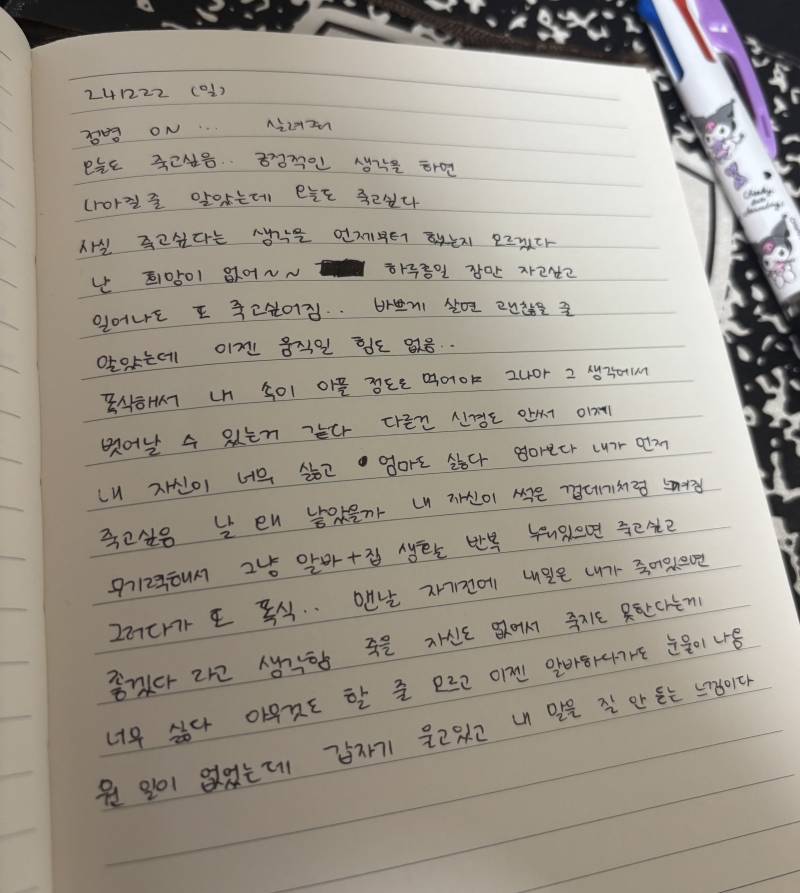 241222 (일)
정병 ON ... 살려줘
오늘도 죽고싶음.. 긍정적인 생각을 하면
나아질 줄 알았는데 오늘도 죽고싶다
사실 죽고싶다는 생각을 언제부터 했는지 모르겠다
난 희망이 없어~~ 하루종일 잠만 자고싶고
일어나도 또 죽고싶어짐.. 바쁘게 살면 괜찮을 줄
알았는데 이젠 움직일 힘도 없음..
폭식해서 내 속이 아플 정도로 먹어야 그나마 그 생각에서
벗어날 수 있는거 같다 다른건 신경도 안써 이제
내 자신이 너무 싫고 엄마도 싫다 엄마보다 내가 먼저
죽고싶음 날 왜 낳았을까 내 자신이 썩은 껍데기처럼 느껴짐
무기력해서 그냥 알바+집 생활 반복 누워있으면 죽고싶고
그러다가 또 폭식.. 맨날 자기전에 내일은 내가 죽어있으면
좋겠다 라고 생각함 죽을 자신도 없어서 죽지도 못한다는게
너무 싫다 아무것도 할 줄 모르고 이젠 알바하다가도 눈물이 나옴
뭔 일이 없었는데 갑자기 울고있고 내 말을 잘 안 듣는 느낌이다